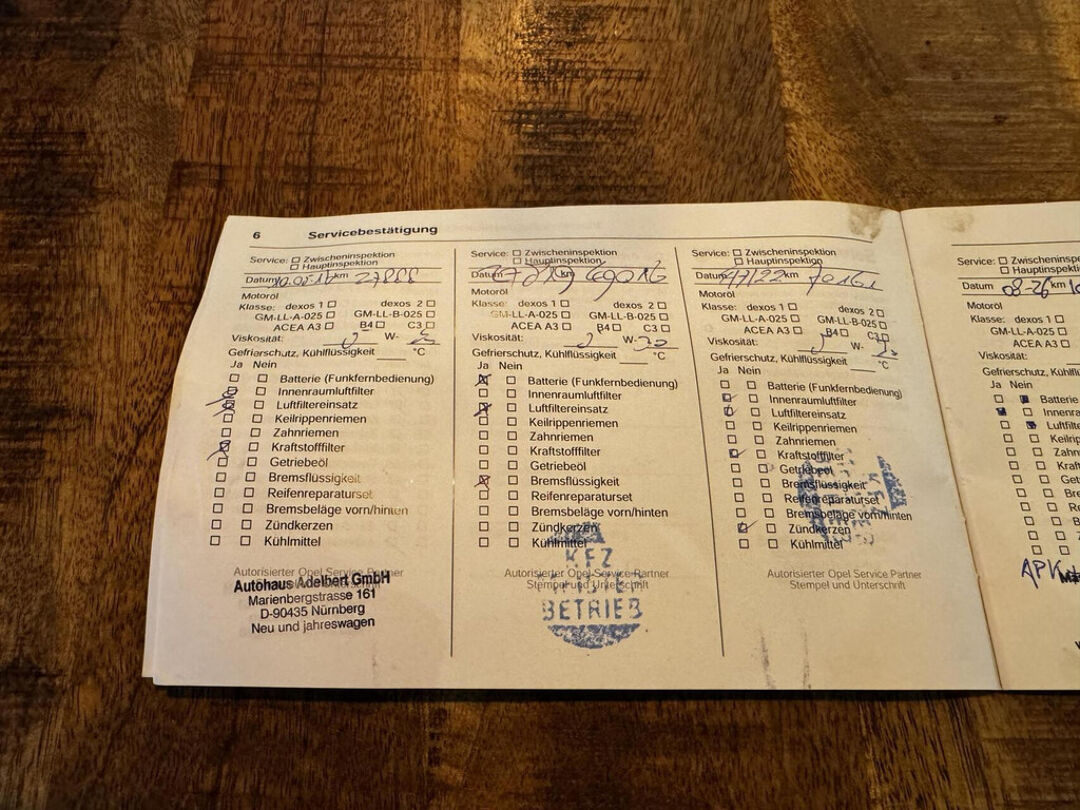 6 Servicebestätigung
Service: Zwischeninspektion
Hauptinspektion
Datum km 27888
Motoröl
Klasse: dexos 1 dexos 2
GM-LL-A-025 GM-LL-B-025
ACEA A3 B4 C3
Viskosität: W-
Gefrierschutz, Kühlflüssigkeit °C
Ja Nein
Batterie (Funkfernbedienung)
Innenraumluftfilter
Luftfiltereinsatz
Keilrippenriemen
Zahnriemen
Kraftstofffilter
Getriebeöl
Bremsflüssigkeit
Reifenreparaturset
Bremsbeläge vorn/hinten
Zündkerzen
Kühlmittel
Autorisierter Opel Service Partner
Autohaus Adelbert GmbH
Marienbergstrasse 161
D-90435 Nürnberg
Neu und jahreswagen
Service: Zwischeninspektion
Hauptinspektion
Datum km
Motoröl
Klasse: dexos 1 dexos 2
GM-LL-A-025 GM-LL-B-025
ACEA A3 B4 C3
Viskosität: W-30
Gefrierschutz, Kühlflüssigkeit °C
Ja Nein
Batterie (Funkfernbedienung)
Innenraumluftfilter
Luftfiltereinsatz
Keilrippenriemen
Zahnriemen
Kraftstofffilter
Getriebeöl
Bremsflüssigkeit
Reifenreparaturset
Bremsbeläge vorn/hinten
Zündkerzen
Kühlmittel
KFZ
Autorisierter Opel Service Partner
Stempel und Unterschrift
BETRIEB
Service: Zwischeninspektion
Hauptinspektion
Datum km
Motoröl
Klasse: dexos 1 dexos 2
GM-LL-A-025 GM-LL-B-025
ACEA A3 B4 C3
Viskosität: W-
Gefrierschutz, Kühlflüssigkeit °C
Ja Nein
Batterie (Funkfernbedienung)
Innenraumluftfilter
Luftfiltereinsatz
Keilrippenriemen
Zahnriemen
Kraftstofffilter
Getriebeöl
Bremsflüssigkeit
Reifenreparaturset
Bremsbeläge vorn/hinten
Zündkerzen
Kühlmittel
Autorisierter Opel Service Partner
Stempel und Unterschrift
Service: Zwischeninsp
Hauptinspek
Datum 08-26 km
Motoröl
Klasse: dexos 1
GM-LL-A-025
ACEA A3
Viskosität:
Gefrierschutz, Kühlflü
Ja Nein
Batterie
Innenra
Luftfilte
Keilrip
Zahn
Kraft
Get
Br
Re
B
APK